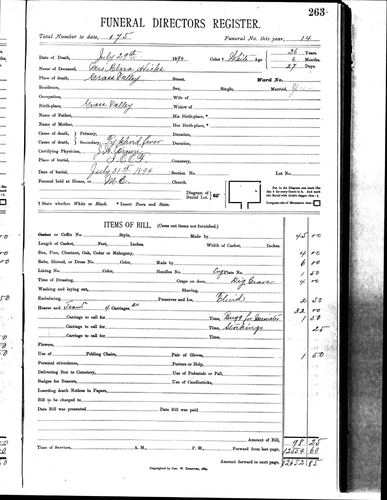 263
FUNERAL DIRECTORS REGISTER.
Total Number to date, 175 Funeral No. this year, 14
Date of Death, July 29th 1894 Color † White Age 26 Years
Name of Deceased, Mrs Clara Hicks 6 Months
Place of death, Grass Valley Street, Ward No. 27 Days
Residence, Sex, Single, Married,
Occupation, Wife of
Birth-place, Grass Valley Widow of
Name of Father, His Birth-place, *
Name of Mother, Her Birth-place, *
Cause of death, Primary, Duration,
Cause of death, Secondary, Typhoid fever Duration,
Certifying Physician,
Place of burial, I.O.O.F. Cemetery,
Date of burial, July 31st 1894 Section No. Lot No.
Funeral held at House, or M.E. Church. Diagram of Burial Lot
† State whether White or Black. * Insert Town and State.
ITEMS OF BILL. (Cross out items not furnished.)
Casket or Coffin No. Style, Made by 45 00
Length of Casket, Feet, Inches. Width of Casket, Inches.
Box, Pine, Chestnut, Oak, Cedar or Mahogany, 4 00
Robe, Shroud, or Dress No. Color, Made by 6 00
Lining No. Color, Handles No. Eng Plate No. 1 50
Time of Dressing, Crape on door, Dig Grave 4 00
Washing and laying out, Shaving,
Embalming, Preserver and Ice, Fluid 2 50
Hearse and Team 4 Carriages 32 00
Carriage to call for Time, Bugg for Minister 1 50
Carriage to call for Time, Stockings 25
Carriage to call for Time,
Flowers,
Use of Folding Chairs, Pair of Gloves, 1 50
Personal attendance, Porters or Help,
Delivering Box to Cemetery, Use of Pedestals or Pall,
Badges for Bearers, Use of Candlesticks,
Inserting death Notices in Papers,
Bill to be charged to
Date Bill was presented Date Bill was paid
Amount of Bill, 98 25
Time of Services, A. M., P. M., Forward from last page, 12554 60
Amount forward to next page, 12652 85